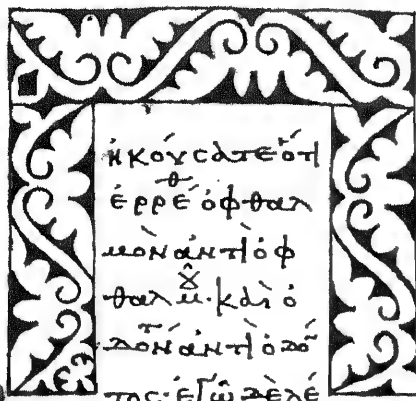 ἠκούσατε ὅτι
ἐρρέθ ὀφθαλ
μὸν ἀντὶ ὀφ
θαλμ· καὶ ὀ
δόντ ἀντὶ ὀδό
τος· ἐγὼ δὲ λέ